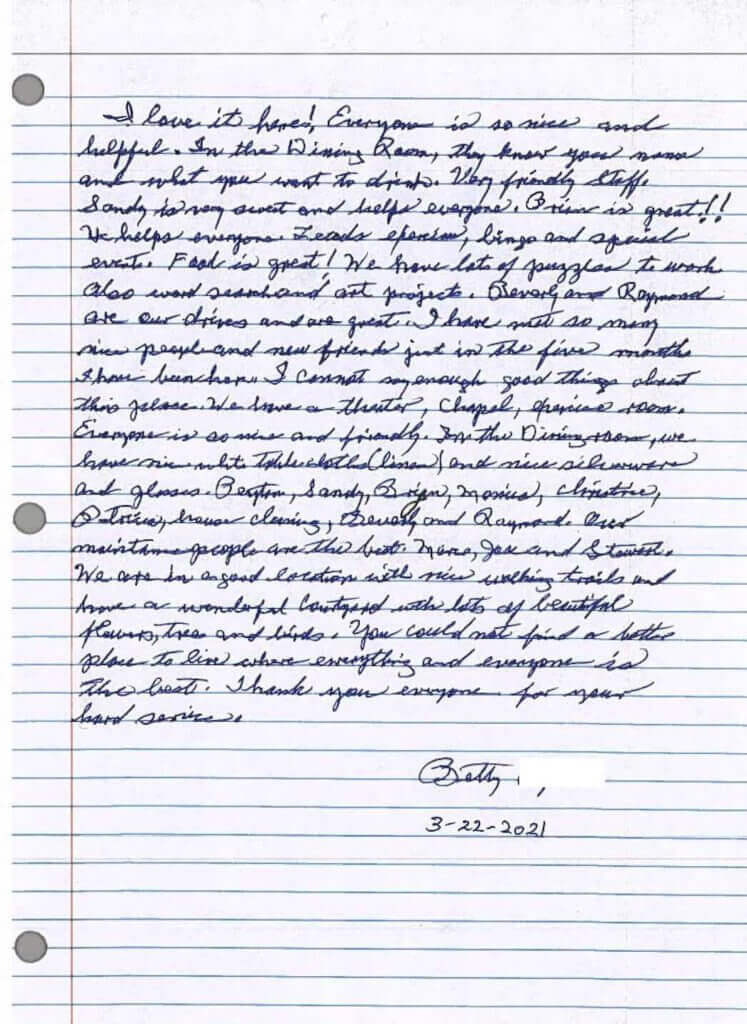 I love it here! Everyone is so nice and
helpful. In the Dining Room, they know your name
and what you want to drink. Very friendly staff.
Sandy is very sweet and helps everyone. Brian is great!!
He helps everyone. Leads exercise, bingo and special
events. Food is great! We have lots of puzzles to work
also word search and art projects. Beverly and Raymond
are our drives and are great. I have met so many
nice people and new friends just in the five months
I have been here. I cannot say enough good things about
this place. We have a theater, Chapel, exercise room.
Everyone is so nice and friendly. In the Dining room, we
have nice white table cloths (linen) and nice silverware
and glasses. Sandy, Brian, Monica, Christine,
Patricia, house cleaning, Beverly and Raymond. Our
people are the best. Joe and
We are in a good location with nice walking trails and
have a wonderful Courtyard with lots of beautiful
flowers, trees and birds. You could not find a better
place to live where everything and everyone is
the best. Thank you everyone for your
hard service.
Betty
3-22-2021